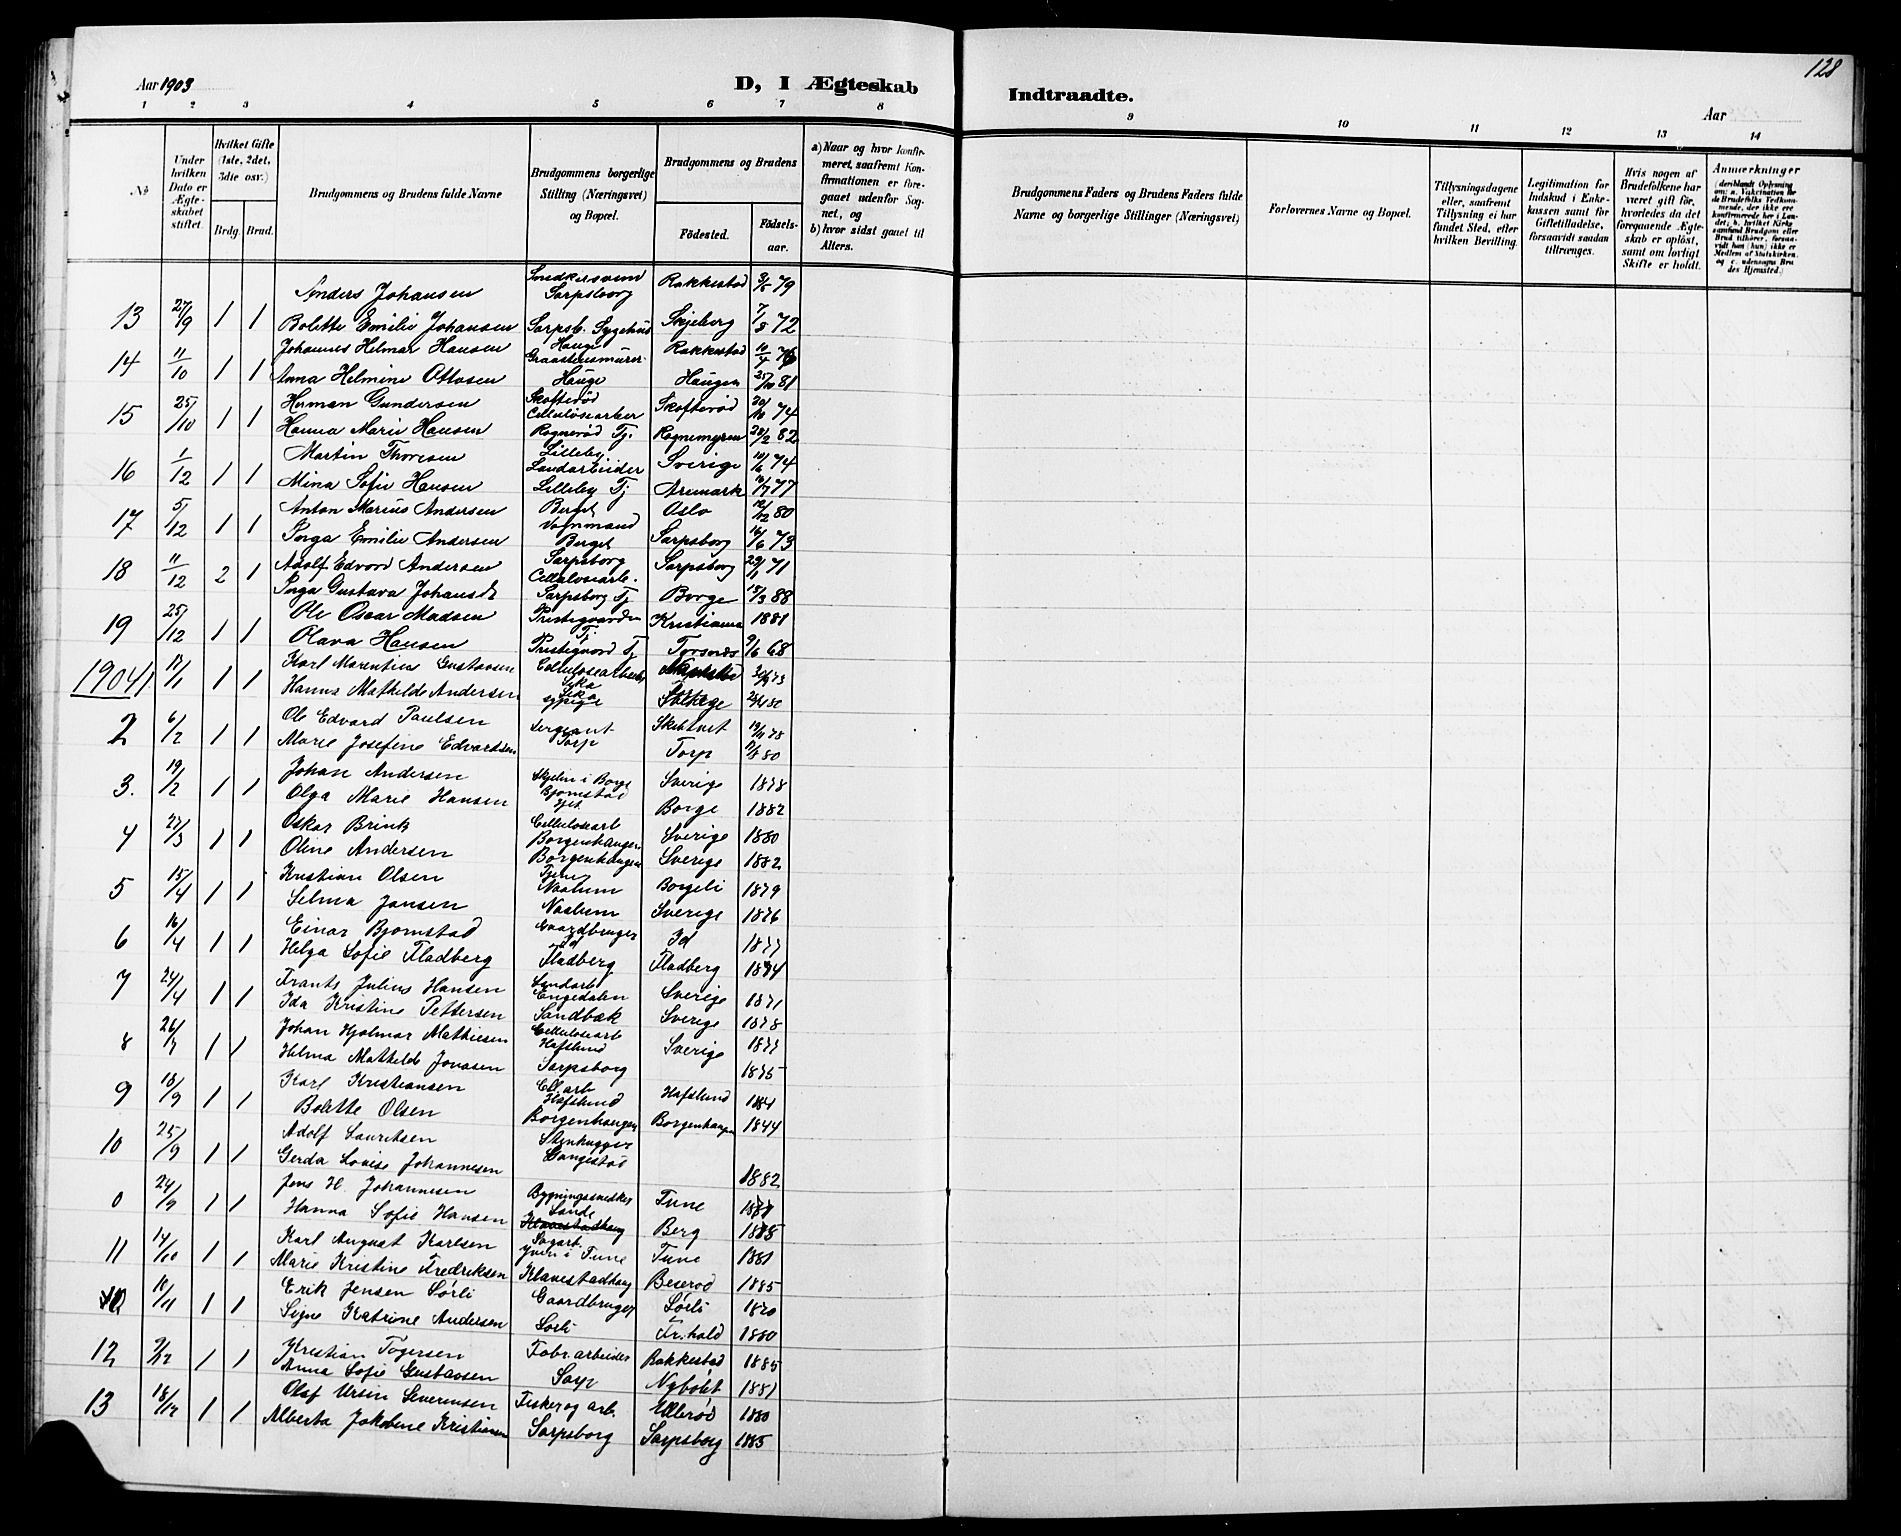 128
Aar 1903
D, I Ægteskab
Indtraadte.
Aar
1 2 3 4 5 6 7 8 9 10 11 12 13 14
No
Under hvilken Dato er Ægteskabet stiftet.
Hvilket Gifte (1ste, 2det, 3die osv.)
Brdg. Brud.
Brudgommens og Brudens fulde Navne
Brudgommens borgerlige Stilling (Næringsvei) og Bopæl.
Brudgommens og Brudens
Fødested.
Fødselsaar.
a) Naar og hvor konfirmeret, saafremt Konfirmationen er foregaaet udenfor Sognet, og
b) hvor sidst gaaet til Alters.
Brudgommens Faders og Brudens Faders fulde Navne og borgerlige Stillinger (Næringsvei)
Forlovernes Navne og Bopæl.
Tillysningsdagene eller, saafremt Tillysning ei har fundet Sted, efter hvilken Bevilling.
Legitimation for Indskud i Enkekassen samt for Giftetilladelse, forsaavidt saadan tiltrænges.
Hvis nogen af Brudefolkene har været gift før, hvorledes da det foregaaende Ægteskab er opløst, samt om lovligt Skifte er holdt.
Anmærkninger (deriblandt Oplysning om: a. Vakcination for de Brudefolks Vedkommende, der ikke ere konfirmerede her i Landet; b. hvilket Kirkesamfund Brudgom eller Brud tilhører, forsaavidt han (hun) ikke er Medlem af Statskirken, og c. udensogns Brudes Hjemsted.)
Anders Johansen Snedkersvenn Sarpsborg Rakkestad 79
13 27/9 1 1 Bolette Emilie Johansen Sarpsb. Sygehus Skjeberg 7/8 72
Johannes Helmar Hansen Hauge Graastensmurer Rakkestad 10/4 76
14 11/10 1 1 Anna Helmine Ottosen Hauge Haugen 25/10 81
Herman Gundersen Skofterød Celluløsearber Skofterød 20/10 74
15 25/10 1 1 Hanna Marie Hansen Rognerød Tj. Rognemyren 28/2 82
Martin Thoresen Lilleby Landarbeider Sverige 10/6 74
16 1/12 1 1 Mina Sofie Hansen Lilleby Tj Aremark 77
Anton Marius Andersen Berget Vognmand Oslo 12/12 80
17 5/12 1 1 Inga Emilie Andersen Berget Sarpsborg 16/6 73
Adolf Edvard Andersen Sarpsborg Cellulosearb. Sarpsborg 29/11 71
18 11/12 2 1 Inga Gustava Johansdt Sarpsborg Tj Borge 15/3 88
Ole Oscar Madsen Prestegaarden Tj Kristiania 1881
19 25/12 1 1 Olava Hansen Prestegaard Tj Tyrsnæs 9/6 68
1904 1 17/1 1 1 Karl Marentius Gustavsen Cellulosearbeider
Hanna Mathilde Andersen
Ole Edvard Paulsen Sergeant Skibtvet 19/11 78
2 6/2 1 1 Marie Josefine Edvardsen Torp Torp 80
Johan Andersen Skjelin i Borge Sverige 1878
3. 19/2 1 1 Olga Marie Hansen Bjørnstad Borge 1882
Oskar Brink Cellulosearb Borgenhaugen Sverige 1880
4 27/3 1 1 Oline Andersen Borgenhaugen Sverige 1882
Kristian Olsen Naalum Borgeli 1879
5 15/4 1 1 Selma Jansen Naalum Sverige 1876
Einar Bjørnstad Gaardbruger Id Id 1877
6 16/4 1 1 Helga Sofie Fladberg Fladberg Fladberg 1874
Frants Julius Hansen Landarb Engedalen Sverige 1871
7 24/4 1 1 Ida Kristine Pettersen Sandbæk Sverige 1878
Johan Hjalmar Mathiesen Cellulosearb Hafslund Sverige 1877
8 26/7 1 1 Helma Mathilde Jonasen Sarpsborg 1875
Karl Kristiansen Cell. arb Hafslund Hafslund 1884
9 18/9 1 1 Bolette Olsen Borgenhaugen Borgenhaugen 1844
Adolf Lauritsen Stenhugger Langestad
10 25/9 1 1 Gerda Lovise Johannesen 1882
Jens H. Johannesen Bygningssnedker Sande Tune
0 24/9 1 1 Hanna Sofie Hansen Klavestadhaug Berg 1885
Karl August Karlsen Sagarb. Yven i Tune Tune 1881
11 14/10 1 1 Marie Kristine Fredriksen Klavestadhaug Beserød 1885
Erik Jensen Sørli Gaardbruger Sørli 1870
18/11 1 1 Signe Katrine Andersen Sørli Fr.hald 1880
Kristian Togersen Fabr. arbeider Rakkestad 1885
12 9/12 1 1 Anna Sofie Gustavsen Sarp Nybølet 1881
Olaf Ursin Severinsen Fisker og arb. Ellerød 1880
13 18/12 1 1 Alberta Jakobine Kristiansen Sarpsborg Sarpsborg 1885